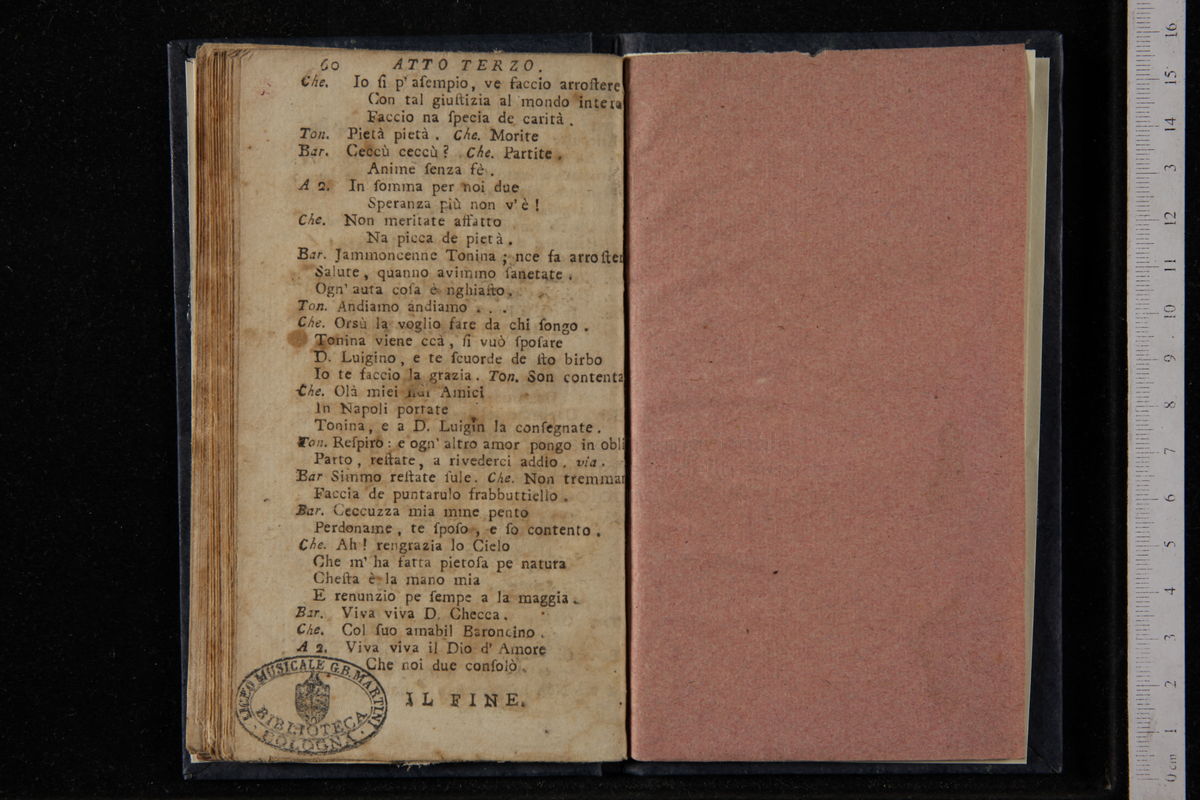 60 ATTO TERZO.
Che. Io ſi p' aſempio, ve faccio arroſtere
Con tal giuſtizia al mondo intero
Faccio na ſpecia de carità.
Ton. Pietà pietà. Che. Morite
Bar. Ceccù ceccù? Che. Partite.
Anime ſenza fè.
A 2. In ſomma per noi due
Speranza più non v'è!
Che. Non meritate affatto
Na picca de pietà.
Bar. Jammoncenne Tonina; nce fa arroſter
Salute, quanno avimmo ſanetate.
Ogn' auta coſa è nghiaſto.
Ton. Andiamo andiamo . . .
Che. Orsù la voglio fare da chi ſongo.
Tonina viene ccà, ſi vuò ſpoſare
D. Luigino, e te ſcuorde de ſto birbo
Io te faccio la grazia. Ton. Son contenta
Che. Olà miei Amici
In Napoli portate
Tonina, e a D. Luigin la conſegnate.
Ton. Reſpiro: e ogn' altro amor pongo in obli
Parto, reſtate, a rivederci addio. via.
Bar Simmo reſtate ſule. Che. Non tremmar
Faccia de puntarulo frabbuttiello.
Bar. Ceccuzza mia mme pento
Perdoname, te ſpoſo, e ſo contento.
Che. Ah! rengrazia lo Cielo
Che m' ha fatta pietoſa pe natura
Cheſta è la mano mia
E renunzio pe ſempe a la maggia.
Bar. Viva viva D. Checca.
Che. Col ſuo amabil Baroncino.
A 2. Viva viva il Dio d' Amore
Che noi due conſolò.
IL FINE.
LICEO MUSICALE G.B. MARTINI
BIBLIOTECA
BOLOGNA
0 cm 1 2 3 4 5 6 7 8 9 10 11 12 3 14 15 16